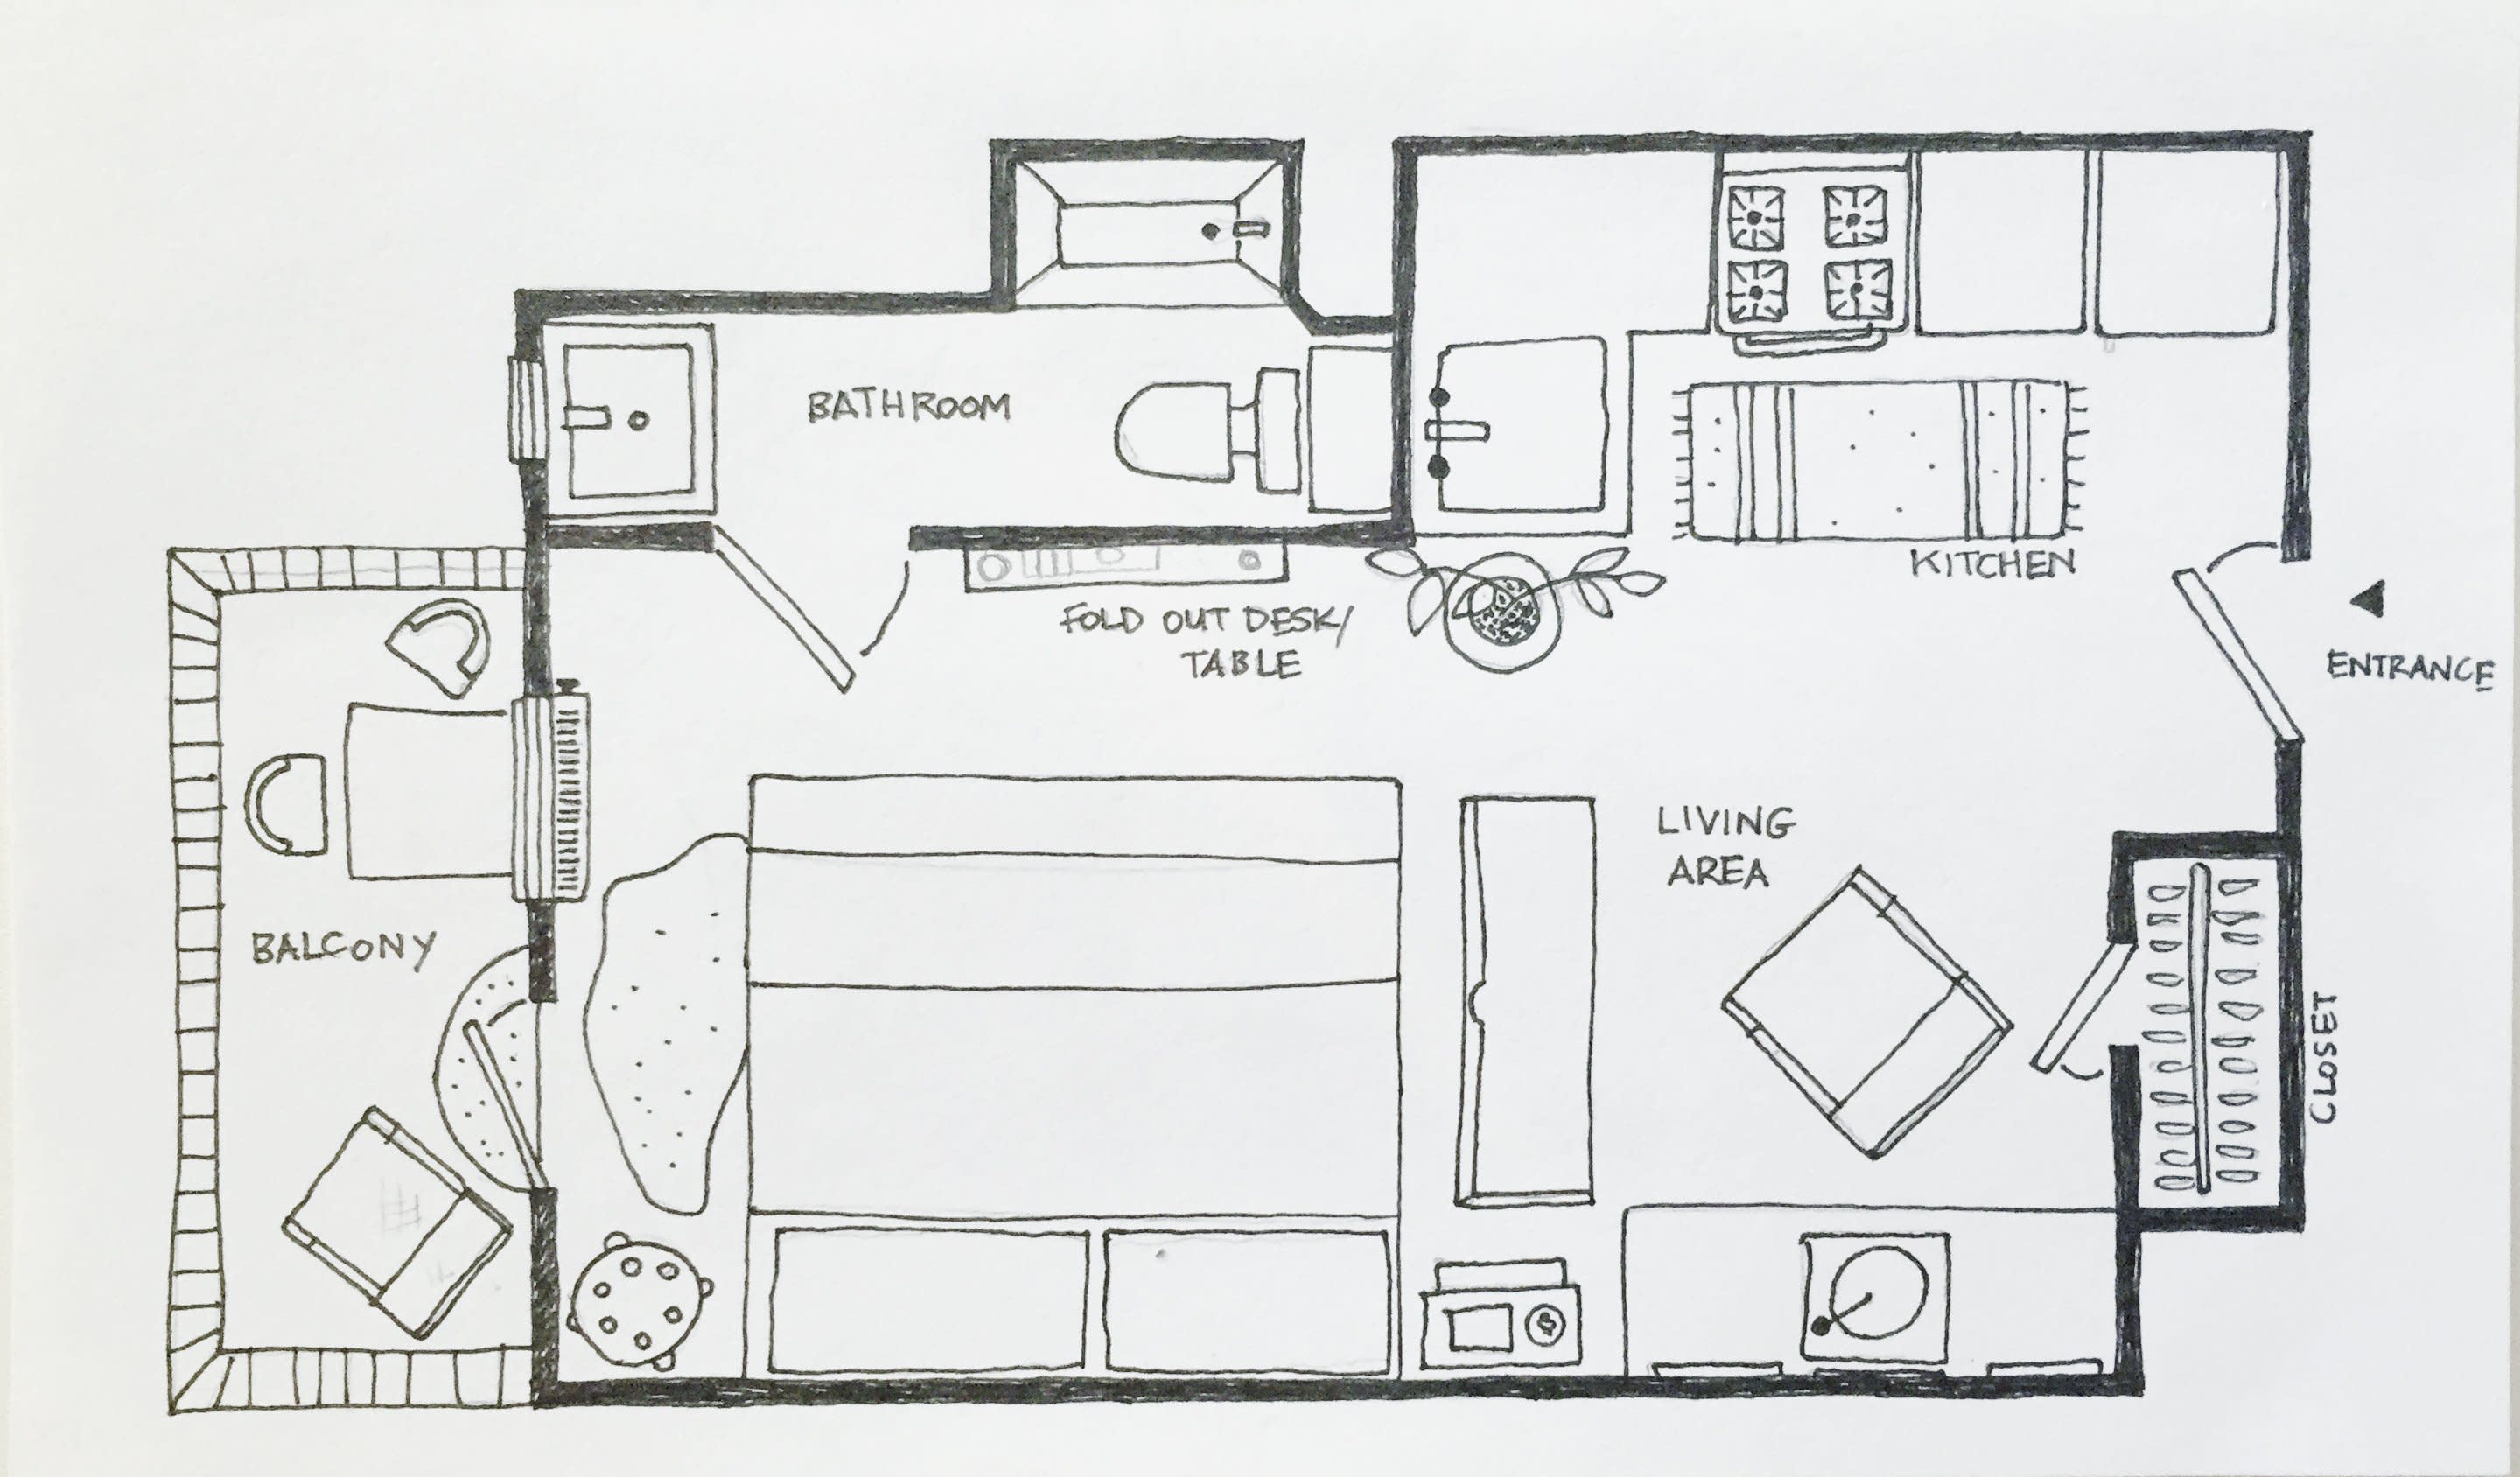 BATHROOM
KITCHEN
FOLD OUT DESK/
TABLE
ENTRANCE
LIVING
AREA
BALCONY
CLOSET